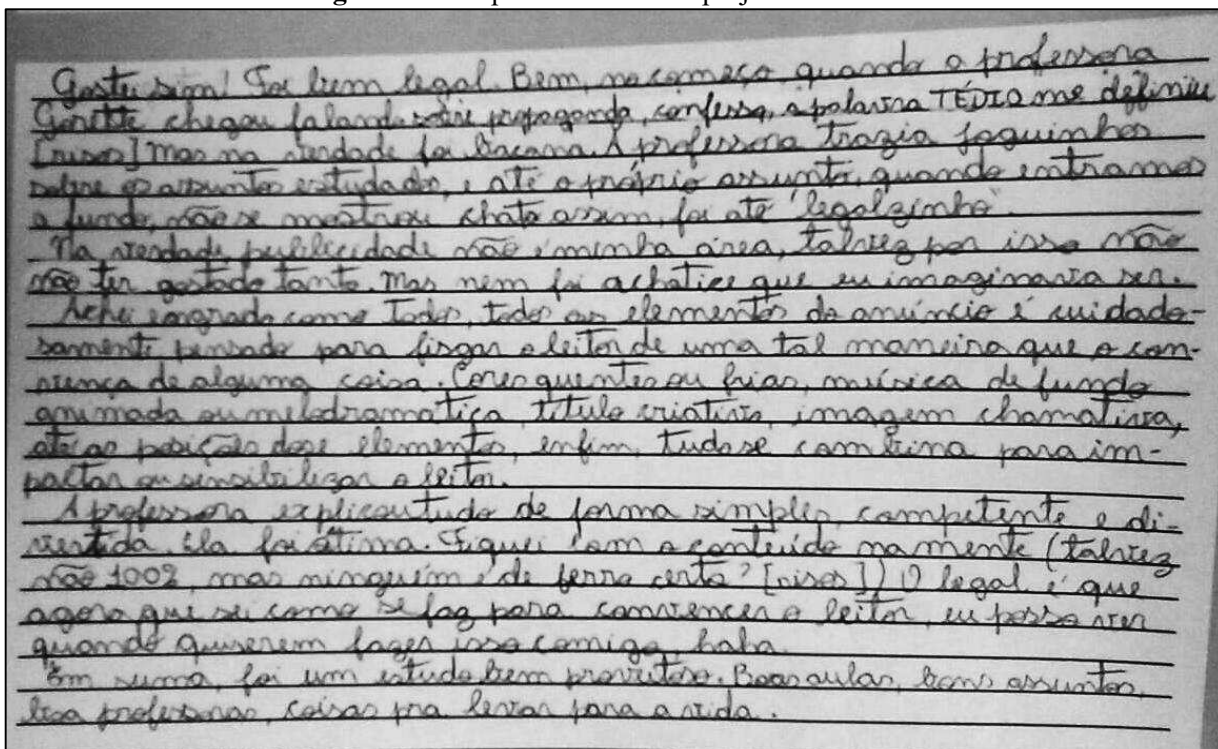 Gostei sim! Foi bem legal. Bem, no começo quando a professora
chegou falando sobre propaganda, confesso, a palavra TÉDIO me definiu
[risos] Mas na verdade foi bacana. A professora trazia joguinhos
sobre os assuntos estudados, e até o próprio assunto, quando entramos
a fundo, não se mostrou chato assim, foi até "legalzinho".
Na verdade publicidade não é minha área, talvez por isso não
não ter gostado tanto. Mas nem foi a chatice que eu imaginaria ser.
Achei engraçado como todos, todos os elementos do anúncio é cuidado-
samente pensado para fisgar o leitor de uma tal maneira que o con-
vença de alguma coisa. Cores quentes ou frias, música de fundo
animada ou melodramatica, título criativo, imagem chamativa,
até as posição dos elementos, enfim, tudo se combina para im-
pactar ou sensibilizar o leitor.
A professora explicou tudo de forma simples, competente e di-
vertida. Ela foi ótima. Fiquei com o conteúdo na mente (talvez
não 100%, mas ninguém é de ferro certo? [risos]) O legal é que
agora que sei como se faz para convencer o leitor, eu posso ver
quando quiserem fazer isso comigo, haha.
Em suma, foi um estudo bem proveitoso. Boas aulas, bons assuntos,
boa professoras, coisas pra levar para a vida.